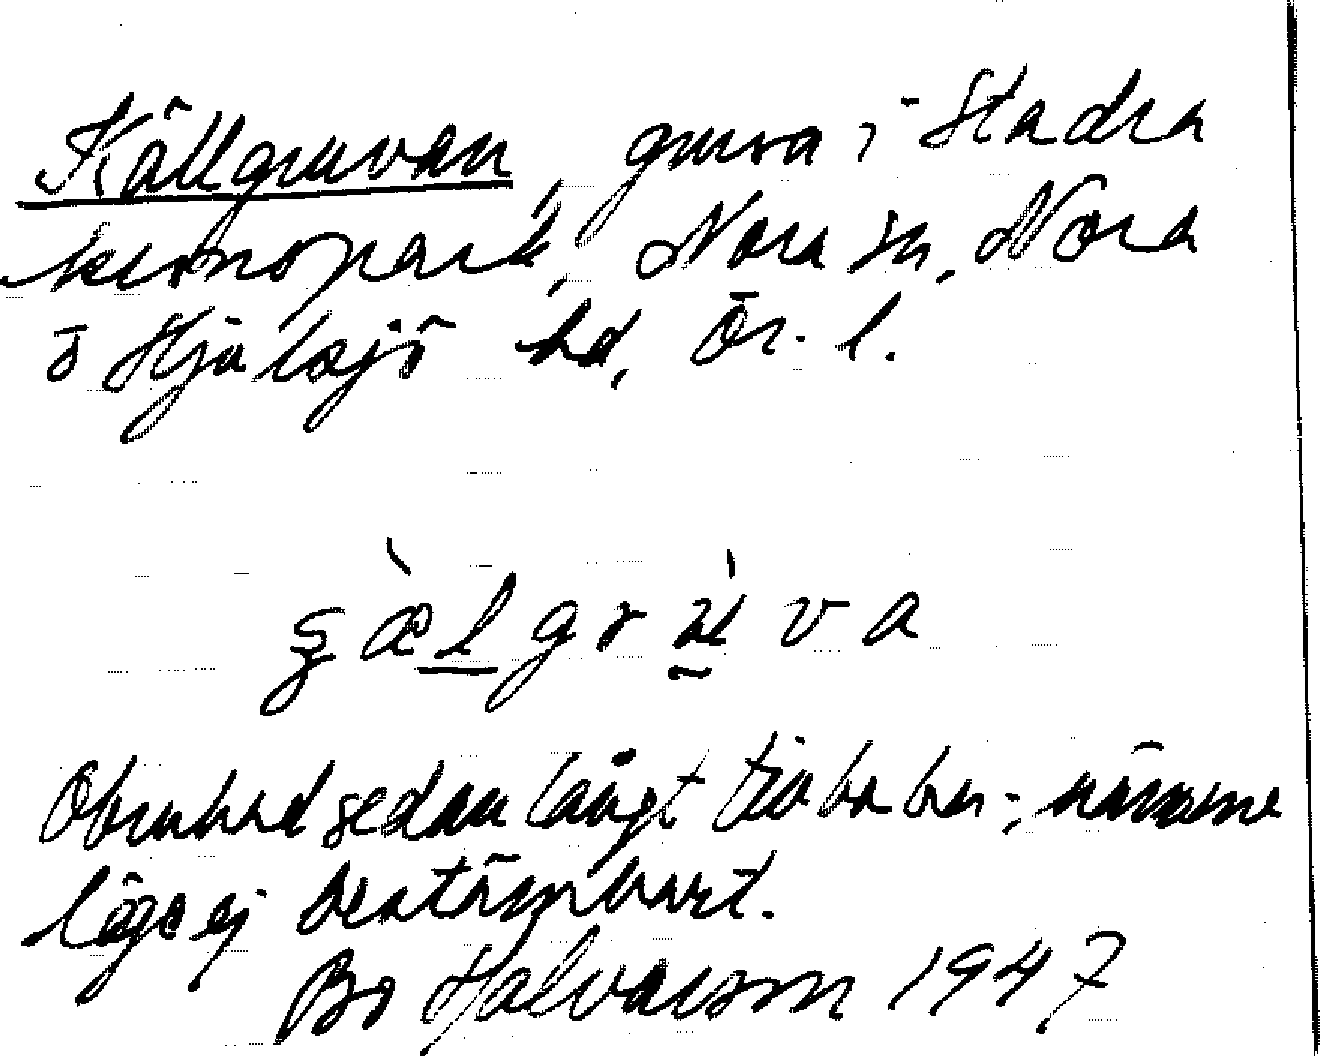 Källgruvan, gruva i Stadra
kronopark, Nora sn, Nora
o Hjulsjö hd, Ör. l.
Obrukad sedan långt tillbaka;
läge ej bestämbart.
Bo Halvarson 1947